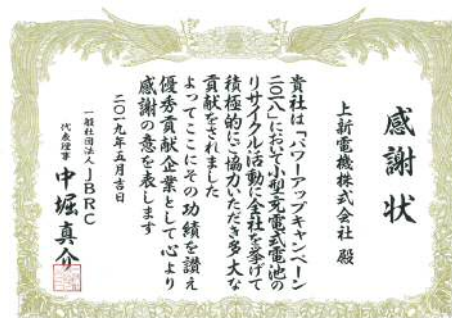 感謝状
上新電機株式会社 殿
貴社は「パワーアップキャンペーン
二〇一八」において小型充電式電池の
リサイクル活動に全社を挙げて
積極的にご協力いただき多大な
貢献をされました
よってここにその功績を讃え
優秀貢献企業として心より
感謝の意を表します
二〇一九年五月吉日
一般社団法人JBRC
代表理事 中堀真介